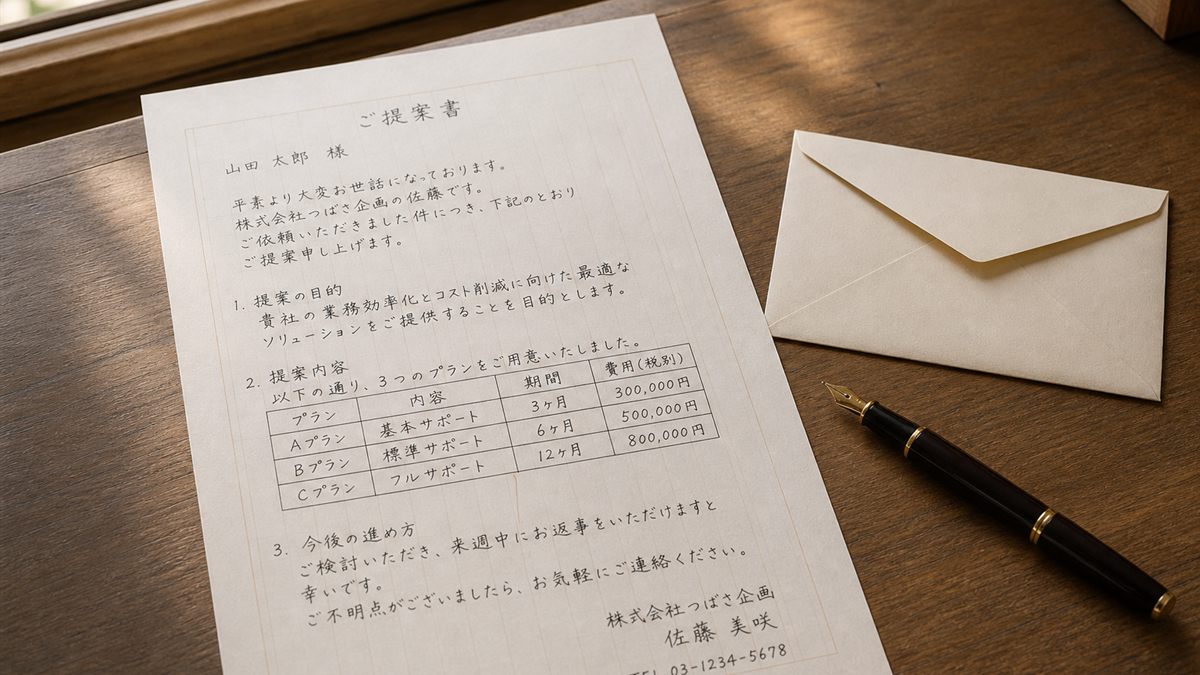 ご提案書
山田 太郎 様
平素より大変お世話になっております。
株式会社つばさ企画の佐藤です。
ご依頼いただきました件につき、下記のとおり
ご提案申し上げます。
1. 提案の目的
貴社の業務効率化とコスト削減に向けた最適な
ソリューションをご提供することを目的とします。
2. 提案内容
以下の通り、3つのプランをご用意いたしました。
プラン 内容 期間 費用(税別)
Aプラン 基本サポート 3ヶ月 300,000円
Bプラン 標準サポート 6ヶ月 500,000円
Cプラン フルサポート 12ヶ月 800,000円
3. 今後の進め方
ご検討いただき、来週中にお返事をいただけますと
幸いです。
ご不明点がございましたら、お気軽にご連絡ください。
株式会社つばさ企画
佐藤 美咲
TEL 03-1234-5678